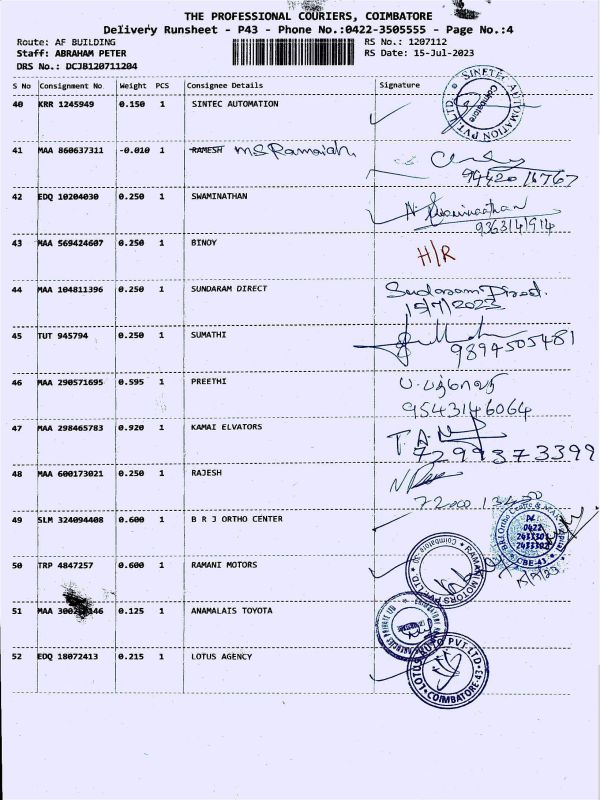 THE PROFESSIONAL COURIERS, COIMBATORE
Delivery Runsheet - P43 - Phone No.:0422-3505555 - Page No.:4
Route: AF BUILDING RS No.: 1207112
Staff: ABRAHAM PETER RS Date: 15-Jul-2023
DRS No.: DCJB120711204
S No Consignment No Weight PCS Consignee Details Signature
40 KRR 1245949 0.150 1 SINTEC AUTOMATION
SINTEC AUTOMATION PVT. LTD Coimbatore
41 MAA 860637311 -0.010 1 RAMESH M.S Ramaiah
42 EDQ 10204030 0.250 1 SWAMINATHAN A. Swaminathan
9363141914
43 MAA 569424607 0.250 1 BINOY H/R
44 MAA 104811396 0.250 1 SUNDARAM DIRECT Sundaram Direct.
15/7/2023
45 TUT 945794 0.250 1 SUMATHI
9894505481
46 MAA 290571695 0.595 1 PREETHI
9543146064
47 MAA 298465783 0.920 1 KAMAI ELVATORS
7299373399
48 MAA 600173021 0.250 1 RAJESH
49 SLM 324094408 0.600 1 B R J ORTHO CENTER
0422
CBE-43
50 TRP 4847257 0.600 1 RAMANI MOTORS
RAMANI MOTORS PVT. LTD Coimbatore
51 MAA 0.125 1 ANAMALAIS TOYOTA
52 EDQ 18072413 0.215 1 LOTUS AGENCY
LOTUS AUTO PVT.LTD COIMBATORE-43